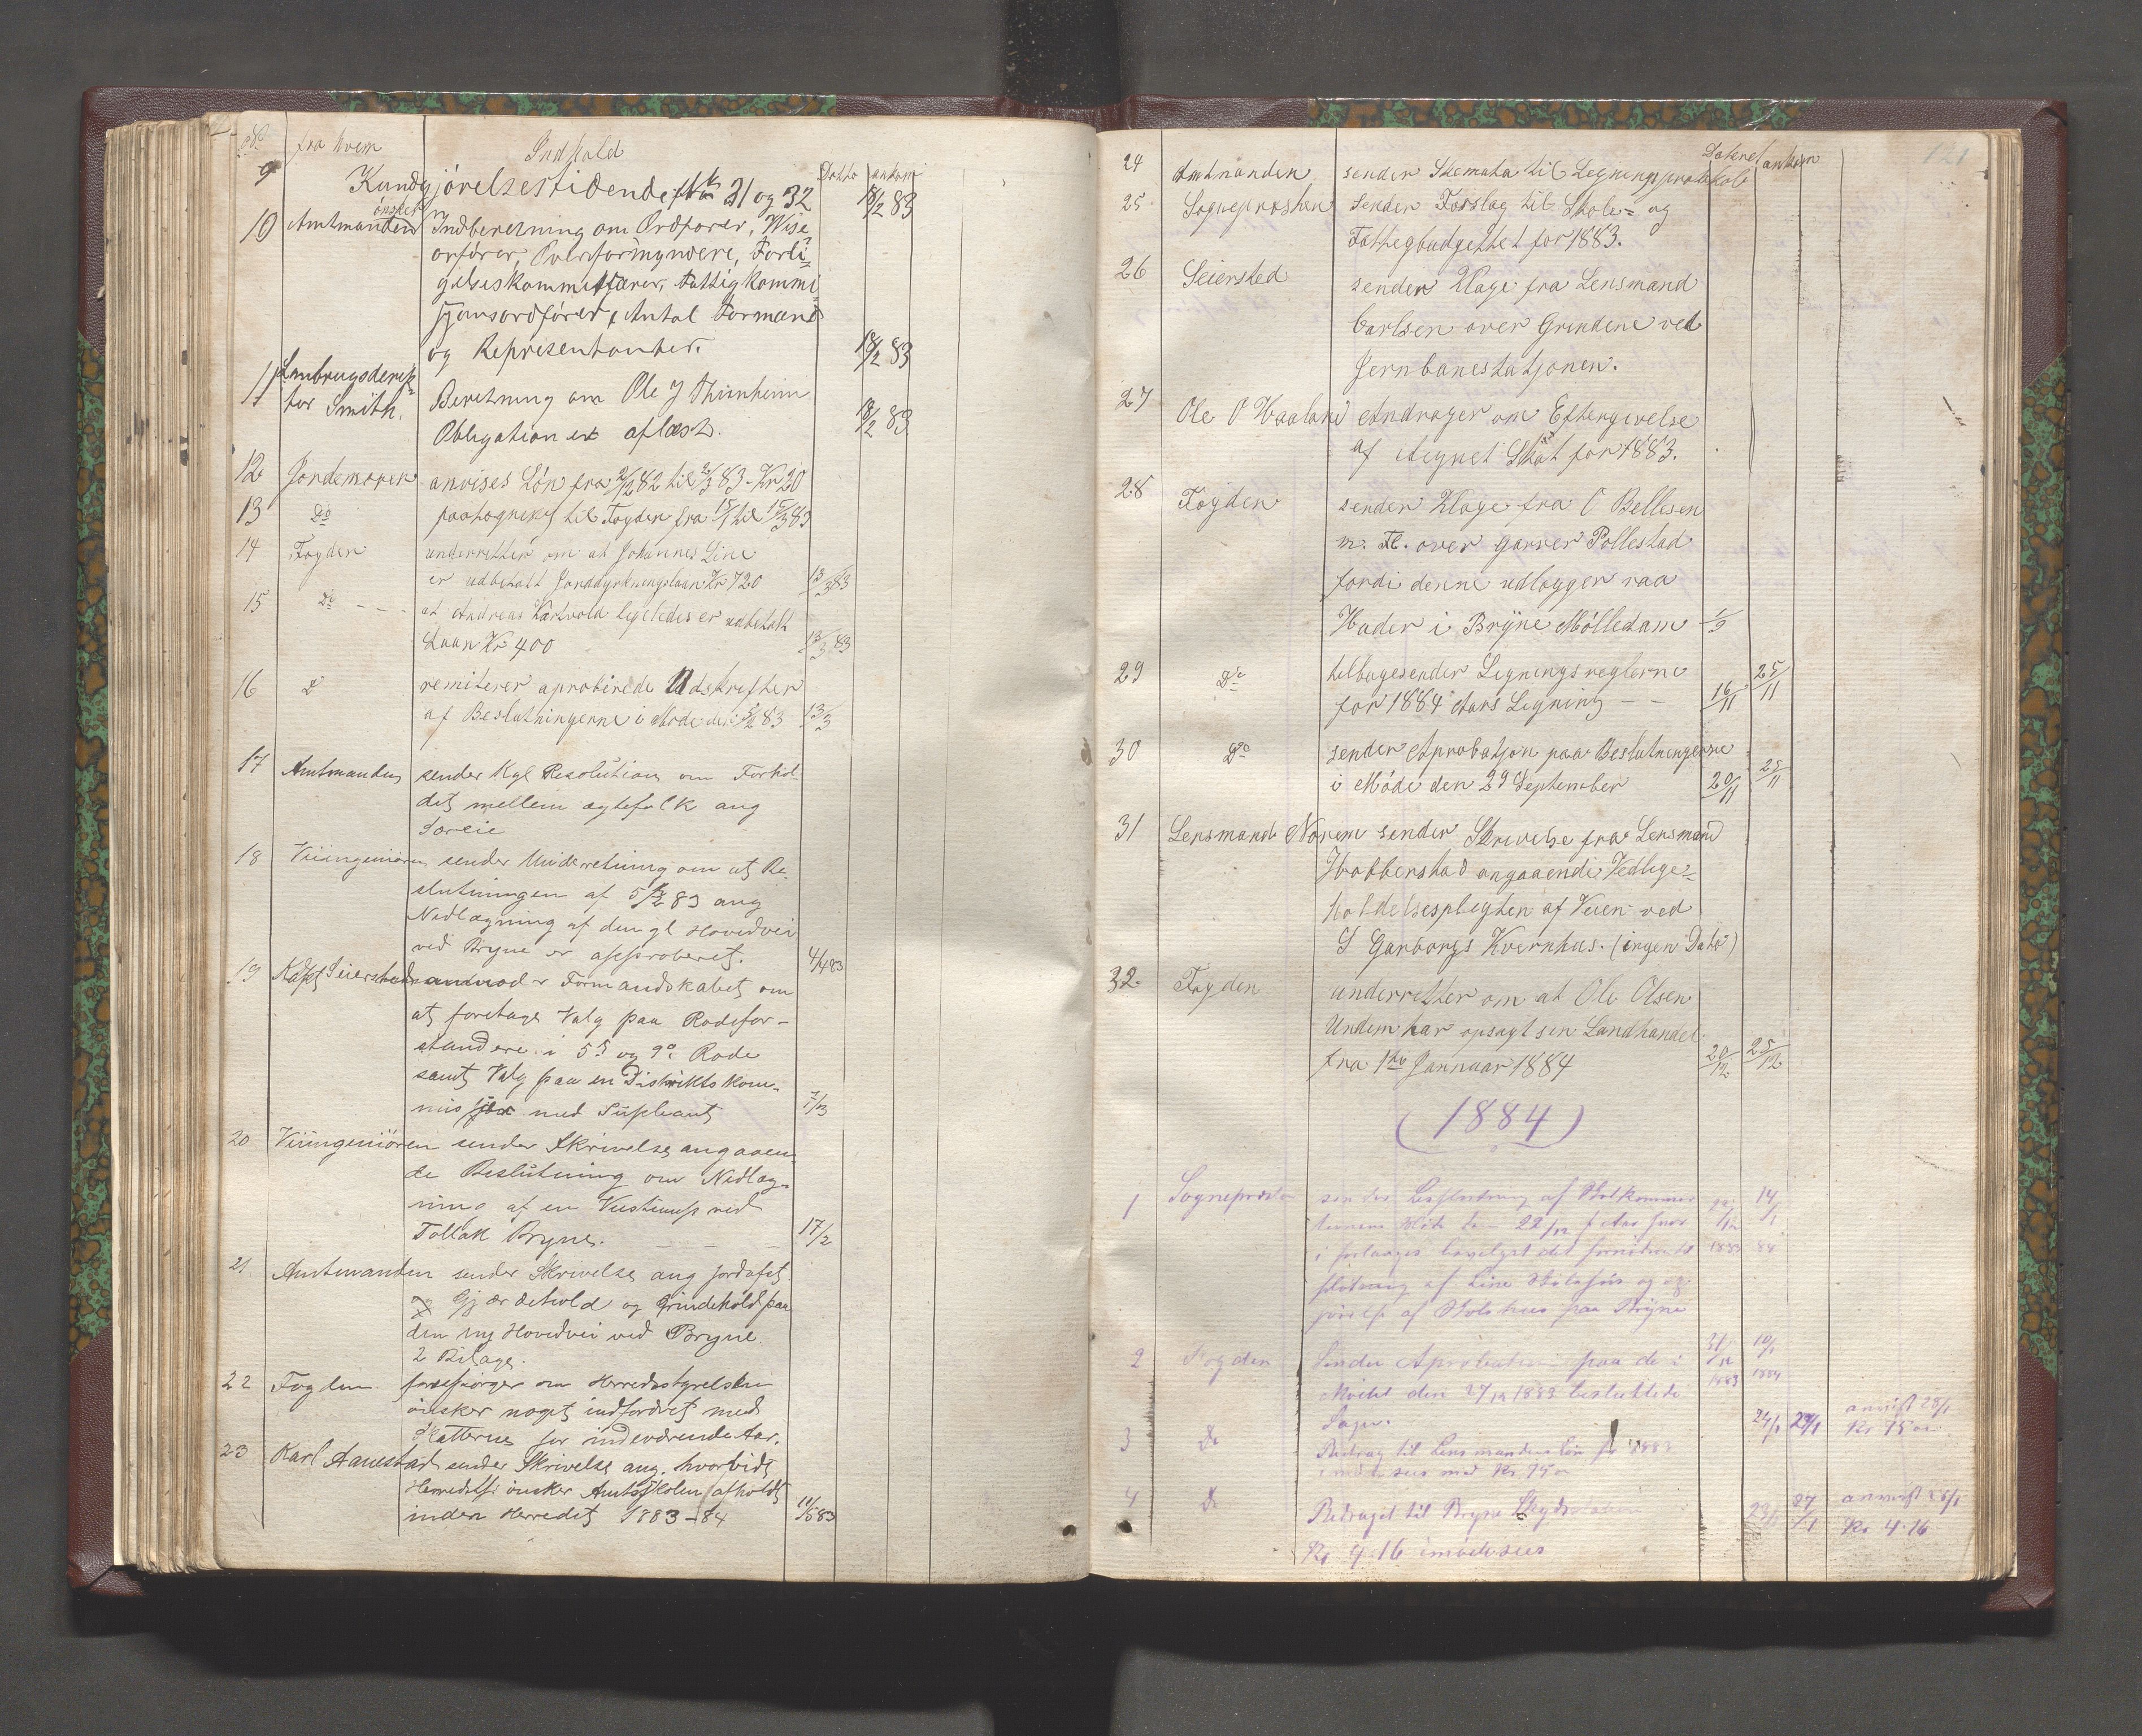 No fra hvem Indhold Datto ankom
9 Kundgjørelsestidende No 31 og 32 18/2 83
10 Amtmanden ønsker Indberetning om Ordfører, Wise
orfører, Overformyndere, Forli=
gelseskommissærer, Fattigkommi=
sjonsordfører, Antal Formænd
og Representanter. 18/2 83
11 Landbrugsderek=
tør Smith. Beretning om Ole J Thunheim
Obligation er aflæst. 18/2 83
12 Jordemoren anvises Løn fra 2/12 82 til 2/3 83 - Kr 20
13 Do paategnet til Fogden fra 15/1 til 15/3 83
14 Fogden underretter om at Johannes Line
er udbetalt Jorddyrkningslaan Kr 720 13/3 83
15 Do - - - at Andreas Kartvold ligeledes er udbetalt
Laan Kr 400 13/3 83
16 Do remiterer aprobirede Udskrifter
af Beslutningerne i Møde den 5/2 83 13/3
17 Amtmanden sender Kgl Resolution om Forhol-
det mellem ægtefolk ang
Særeie
18 Veiingeniøren sender Underretning om at Be-
slutningen af 5/2 83 ang
Nedlægning af den gl Hovedvei
ved Bryne er approberet. 4/4 83
19 Kapt Seiersted anmoder Formandskabet om
at foretage Valg paa Rodefor-
standere i 5te og 9de Rode
samt Valg paa en Distriktskom-
misjær med Supleant 7/3
20 Veiingeniøren sender Skrivelse angaaen-
de Beslutning om Nedlæg-
ning af en Veistump ved
Tollak Bryne. - - - 17/2
21 Amtmanden sender Skrivelse ang Jordafst
og Gjærdehold og Grindehold paa
den ny Hovedvei ved Bryne
2 Bilage.
22 Fogden forespørger om Herredsstyrelsen
ønsker noget indfordret med
Skatterne for indeværende Aar.
23 Karl Aanestad sender Skrivelse ang. hvorvidt
Herredet ønsker Amtsskolen afholdt
inden Herredet 1883-84 11/5 83
121
24 Amtmanden sender Skemata til Ligningsprotokol Dateret ankom
25 Sogneprosten sender Forslag til Skole= og
Fattigbudgettet for 1883.
26 Seiersted sender Klage fra Lensmand
Carlsen over Grindene ved
Jernbanestatjonen.
27 Ole O Haaland Andrager om Eftergivelse
af Aegnet Skat for 1883.
28 Fogden sender Klage fra O Bellesen
m. Fl. over garver Pollestad
fordi denne udlægger raa
Huder i Bryne Mølledam 1/9
29 Do tilbagesender Ligningsreglerne
for 1884 Aars Ligning - - 16/11 25/11
30 Do sender Aprobatjon paa Beslutningerne
i Møde den 29 September 20/11 25/11
31 Lensmand Norem sender Skrivelse fra Lensmand
Hobberstad angaaende Vedlige=
holdelsespligten af Veien ved
S Garborgs Kvernhus. (ingen Dato)
32 Fogden underretter om at Ole Olsen
Undem har opsagt sin Landhandel
fra 1ste Januar 1884 20/12 25/12
(1884)
1 Sogneprest sender Beslutning af Skolkommis
Møde den 22/12 f Aar hvor 14/1
i forlanges bevilget det fornødne til 1883 84
flytning af Line Skolehus og op
førelse af Skolehus paa Bryne
2 Fogden Sender Aprobation paa de i 31/12 10/1
Møde den 27/12 1883 besluttede 1883 1884
Sager.
3 Do Bidrag til Lensmandens Løn for 1883 24/1 29/1 anvist 28/1
imødesees med Kr 75 Kr 75
4 Do Bidraget til Bryne Skydsstation 23/1 27/1 anvist 28/1
Kr 4.16 imødesees Kr 4.16